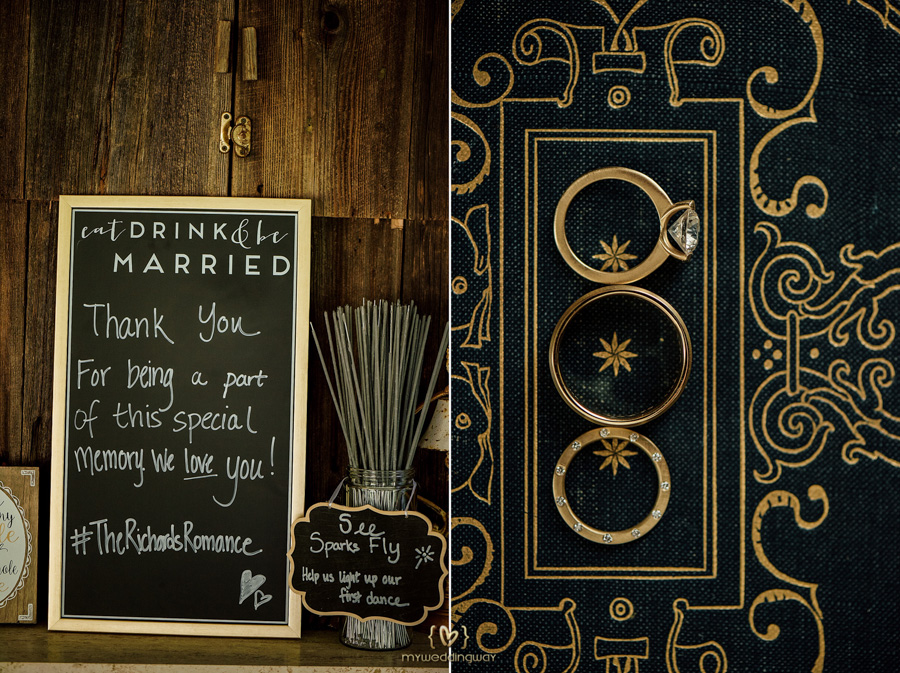 eat DRINK & be
MARRIED
Thank You
For being a part
of this special
memory. We love you!
#TheRichardsRomance
See
Sparks Fly
Help us light up our
first dance
myweddingway